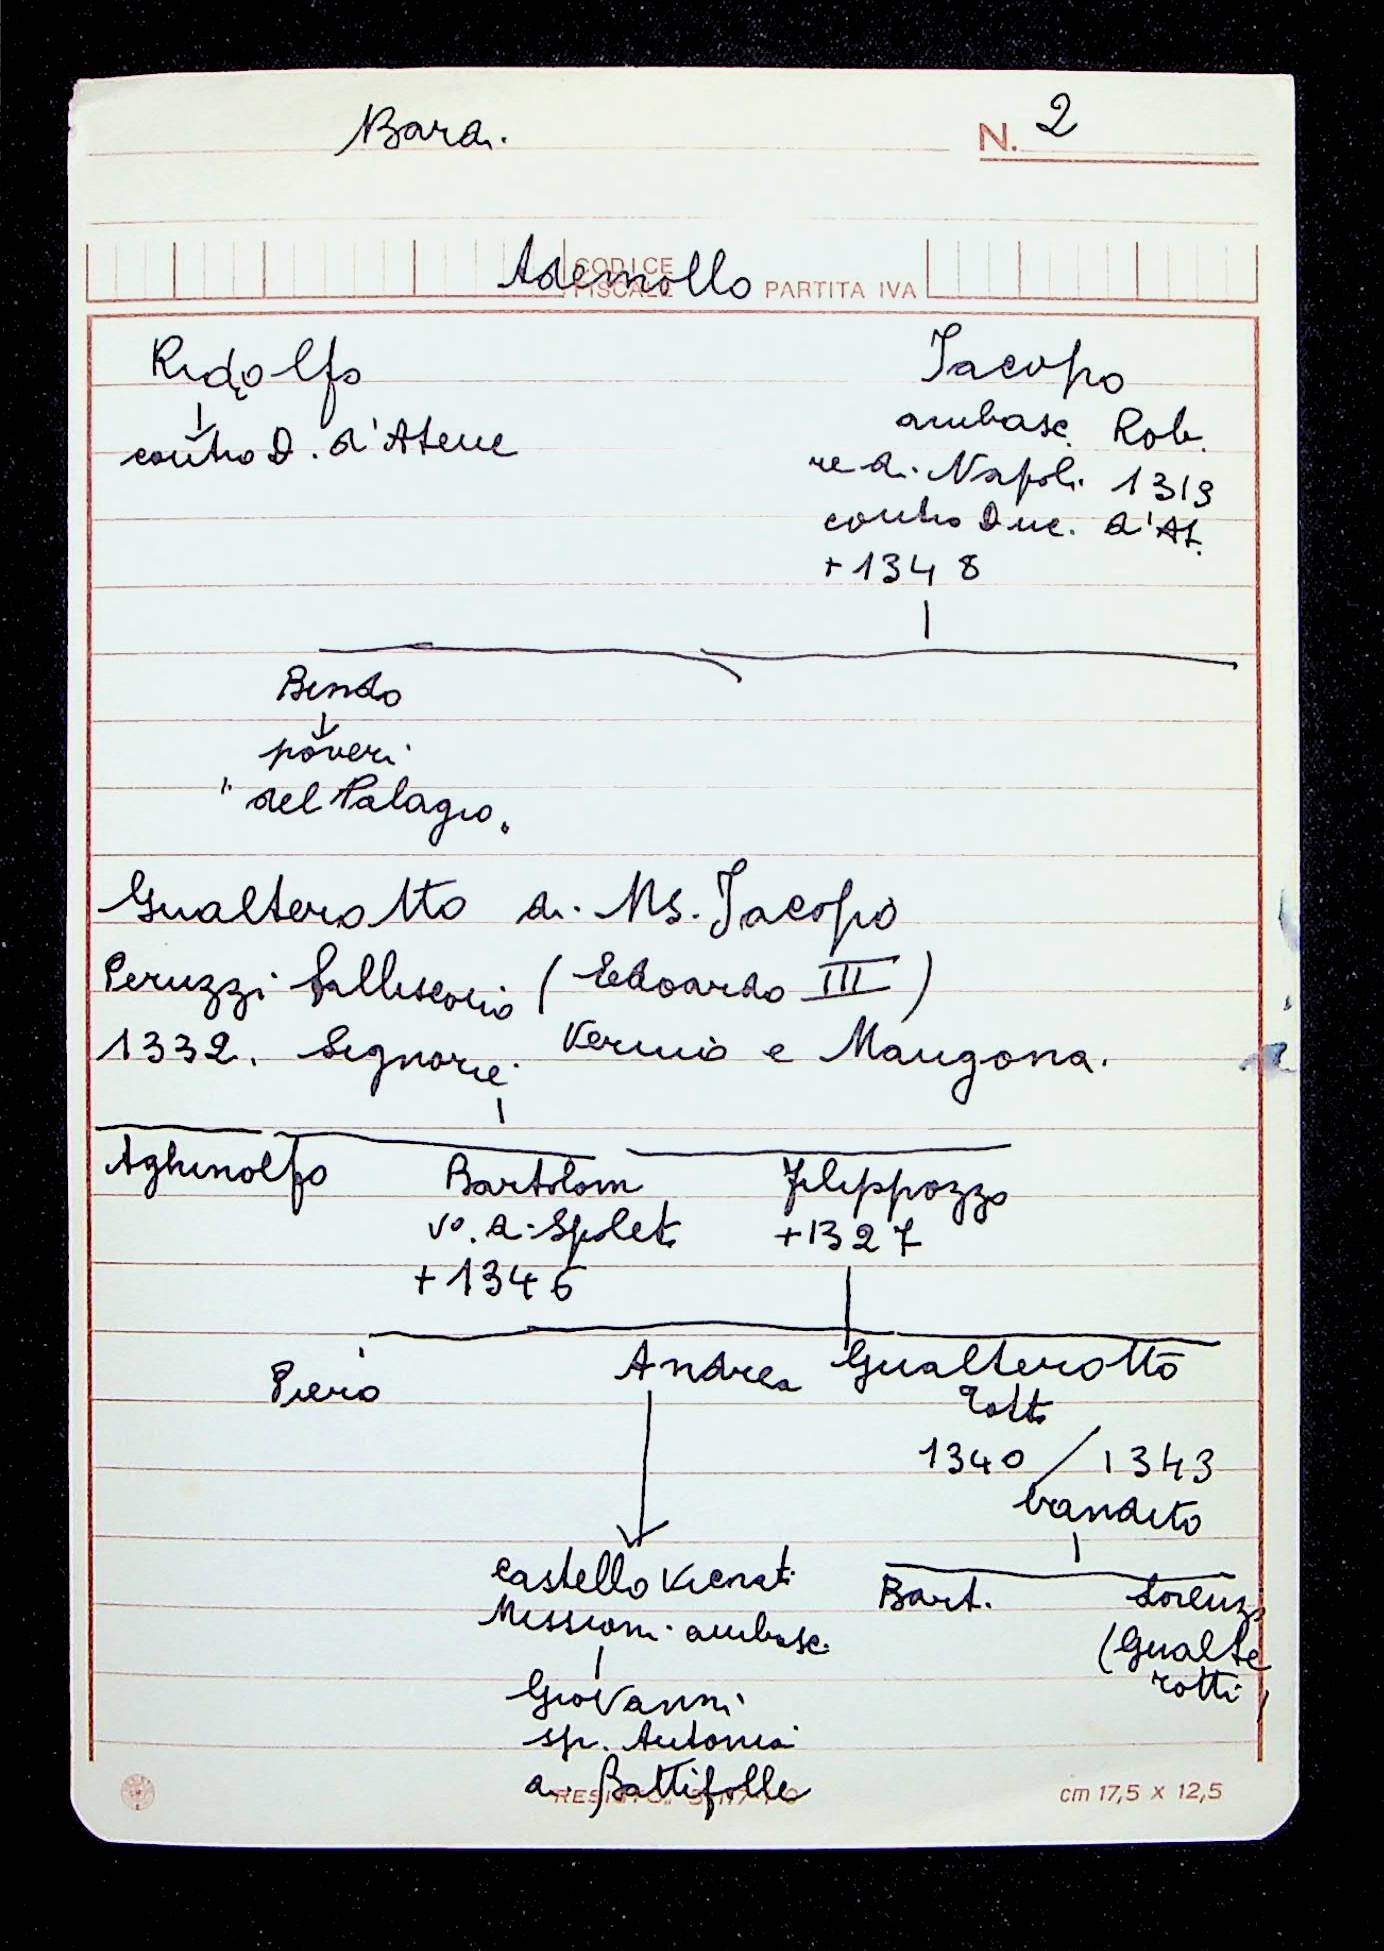 Bardi.
N. 2
CODICE
FISCALE
Ademollo PARTITA IVA
Ridolfo
contro D. d'Atene
Jacopo
ambasc. Rob.
re di Napoli 1319
contro Duc. d'At.
+ 1348
Bindo
poveri
" del Palagio.
Gualterotto di Ms. Jacopo
Peruzzi falliscono (Edoardo III)
1332. Signorie Vernio e Mangona.
Aghinolfo
Bartolom
vo. di Spoleti
+ 1346
Filippozzo
+ 1327
Piero
Andrea
Gualterotto
Totto
1340 / 1343
bandito
castello Vicnati
Missioni ambasc.
Giovanni
sp. Antonia
di Battifolle
Bart.
Lorenzo
(Gualte
rotti)
cm 17,5 x 12,5